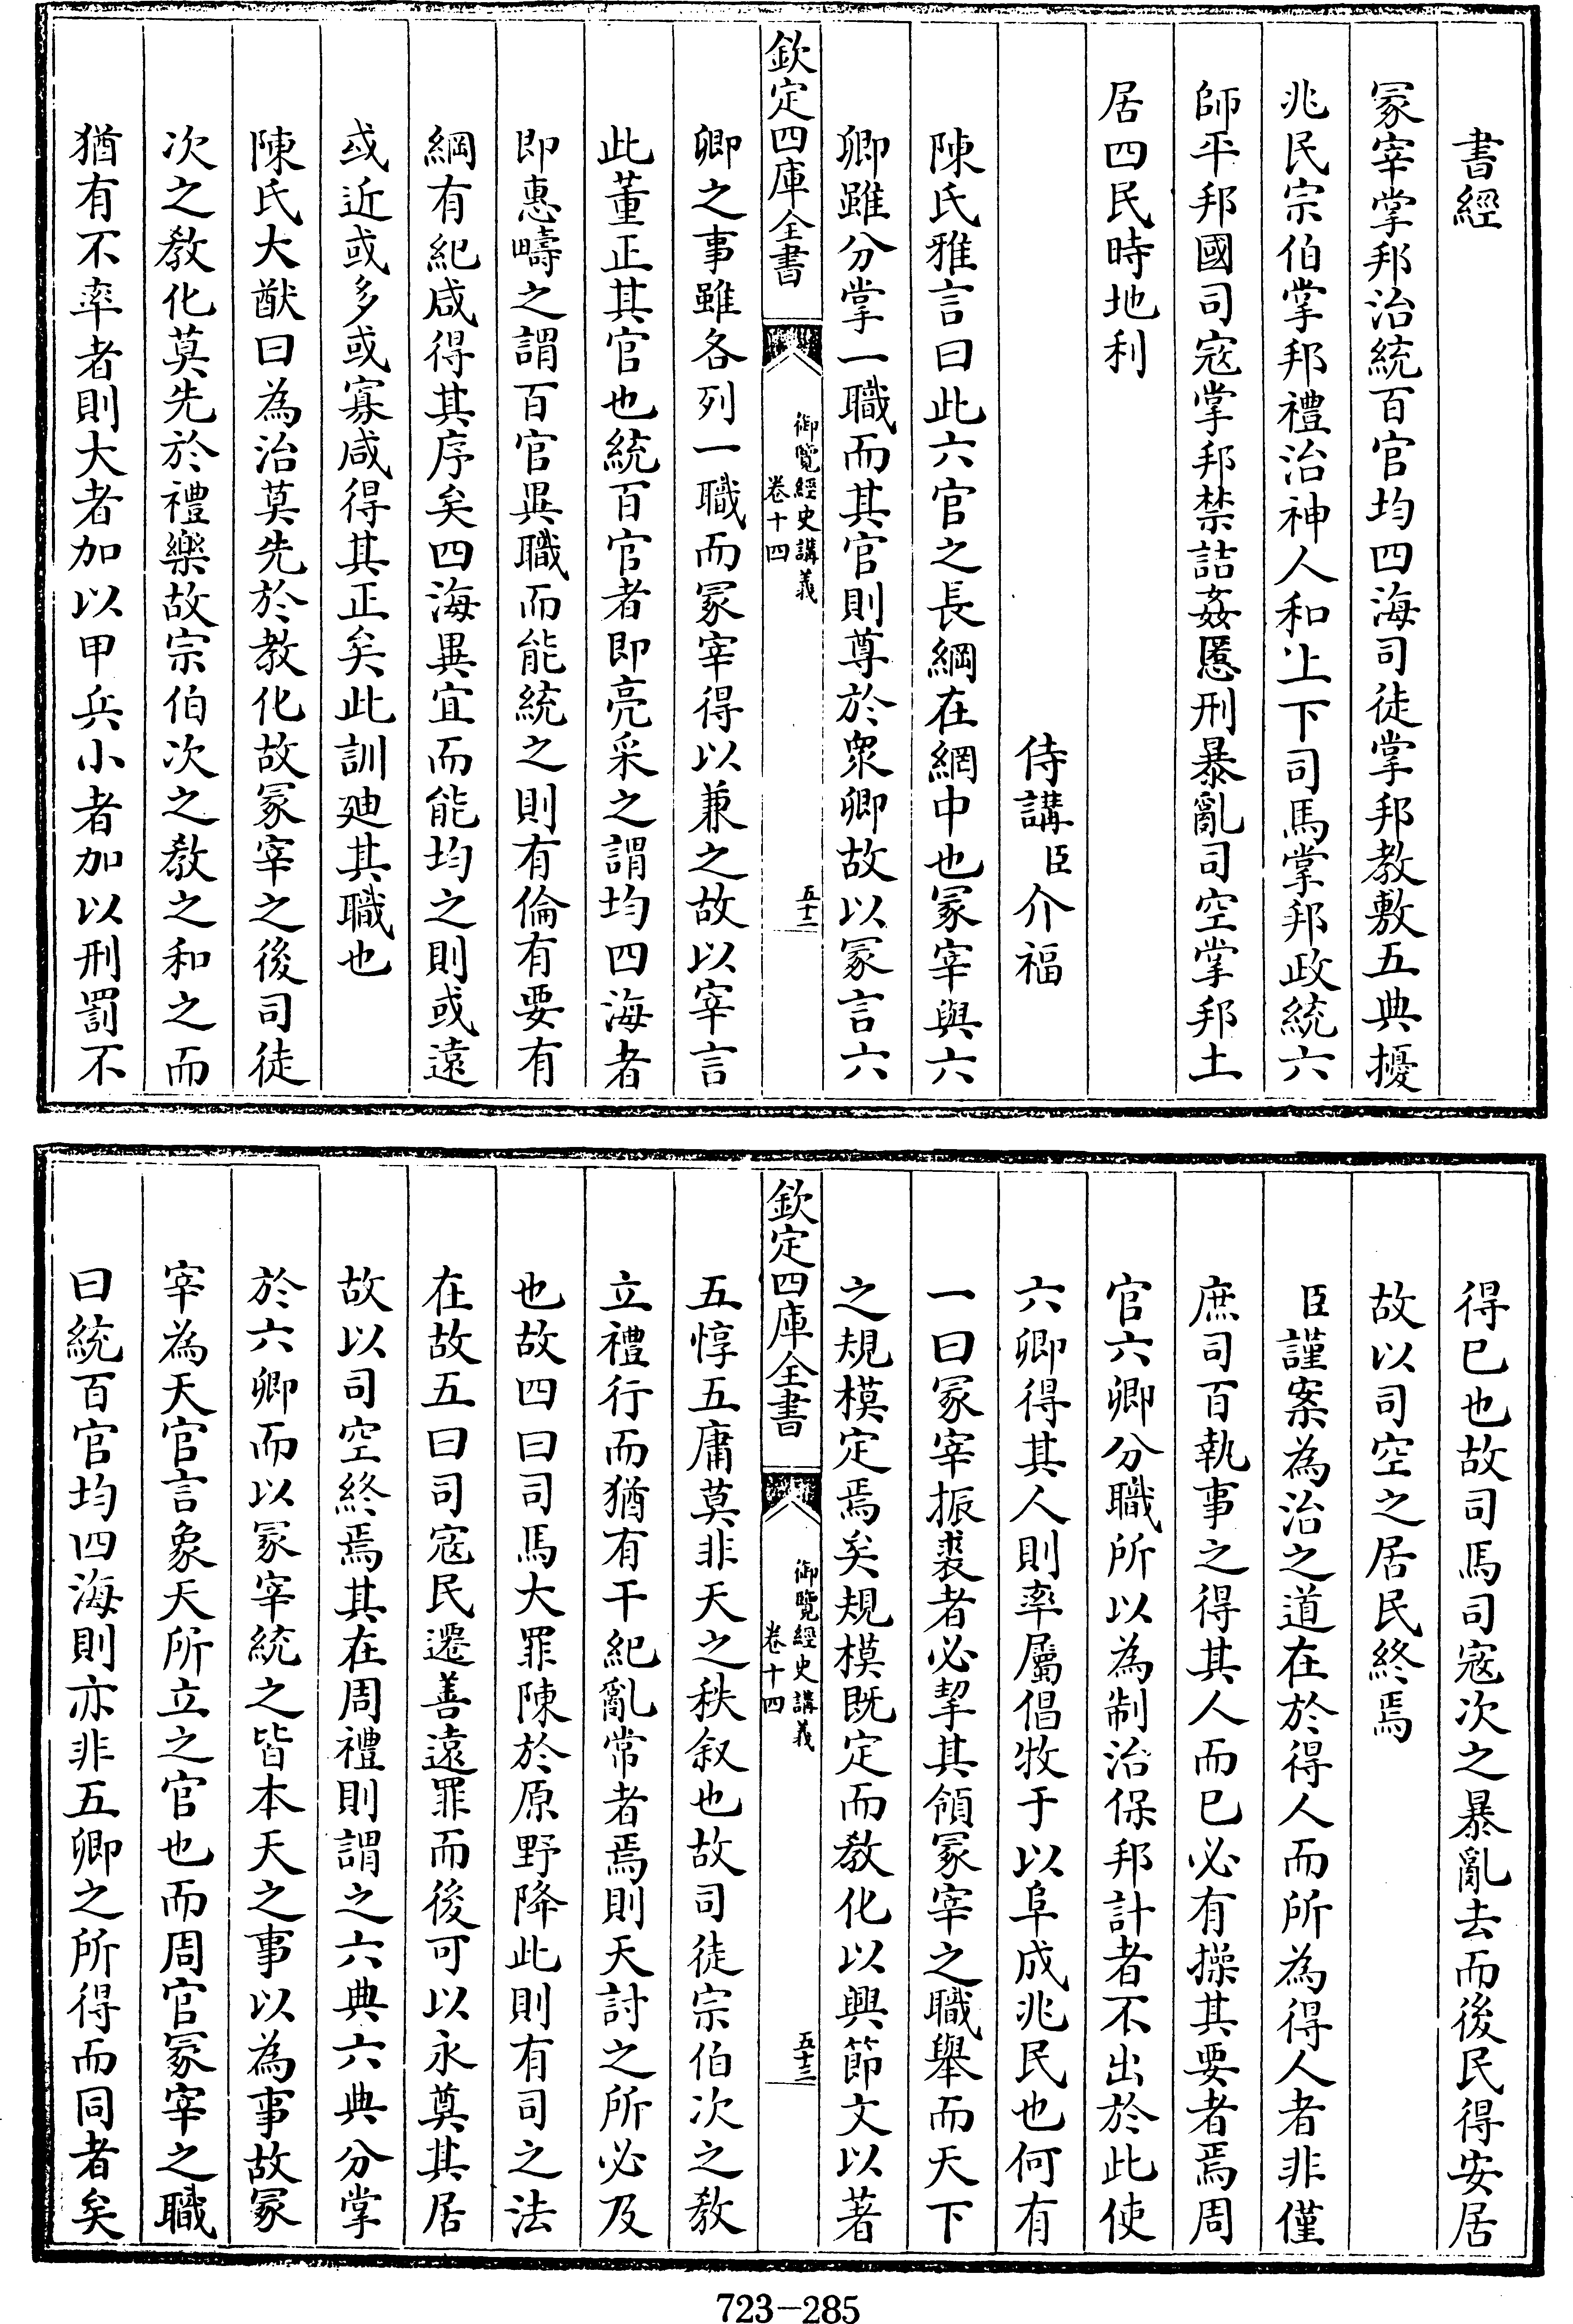 書經
冢宰掌邦治統百官均四海司徒掌邦教敷五典擾
兆民宗伯掌邦禮治神人和上下司馬掌邦政統六
師平邦國司寇掌邦禁詰姦慝刑暴亂司空掌邦土
居四民時地利
侍講臣介福
陳氏雅言曰此六官之長綱在網中也冢宰與六
卿雖分掌一職而其官則尊於衆卿故以冢言六
欽定四庫全書
御覽經史講義
卷十四
五十二
卿之事雖各列一職而冢宰得以兼之故以宰言
此董正其官也統百官者即亮采之謂均四海者
即惠疇之謂百官異職而能統之則有倫有要有
綱有紀咸得其序矣四海異宜而能均之則或遠
或近或多或寡咸得其正矣此訓廸其職也
陳氏大猷曰為治莫先於教化故冢宰之後司徒
次之教化莫先於禮樂故宗伯次之教之和之而
猶有不率者則大者加以甲兵小者加以刑罰不
得已也故司馬司寇次之暴亂去而後民得安居
故以司空之居民終焉
臣謹案為治之道在於得人而所為得人者非僅
庶司百執事之得其人而已必有操其要者焉周
官六卿分職所以為制治保邦計者不出於此使
六卿得其人則率屬倡牧于以阜成兆民也何有
一曰冢宰振裘者必挈其領冢宰之職舉而天下
之規模定焉矣規模既定而教化以興節文以著
欽定四庫全書
御覽經史講義
卷十四
五十三
五惇五庸莫非天之秩叙也故司徒宗伯次之教
立禮行而猶有干紀亂常者焉則天討之所必及
也故四曰司馬大罪陳於原野降此則有司之法
在故五曰司寇民遷善遠罪而後可以永奠其居
故以司空終焉其在周禮則謂之六典六典分掌
於六卿而以冢宰統之皆本天之事以為事故冢
宰為天官言象天所立之官也而周官冢宰之職
曰統百官均四海則亦非五卿之所得而同者矣
723-285